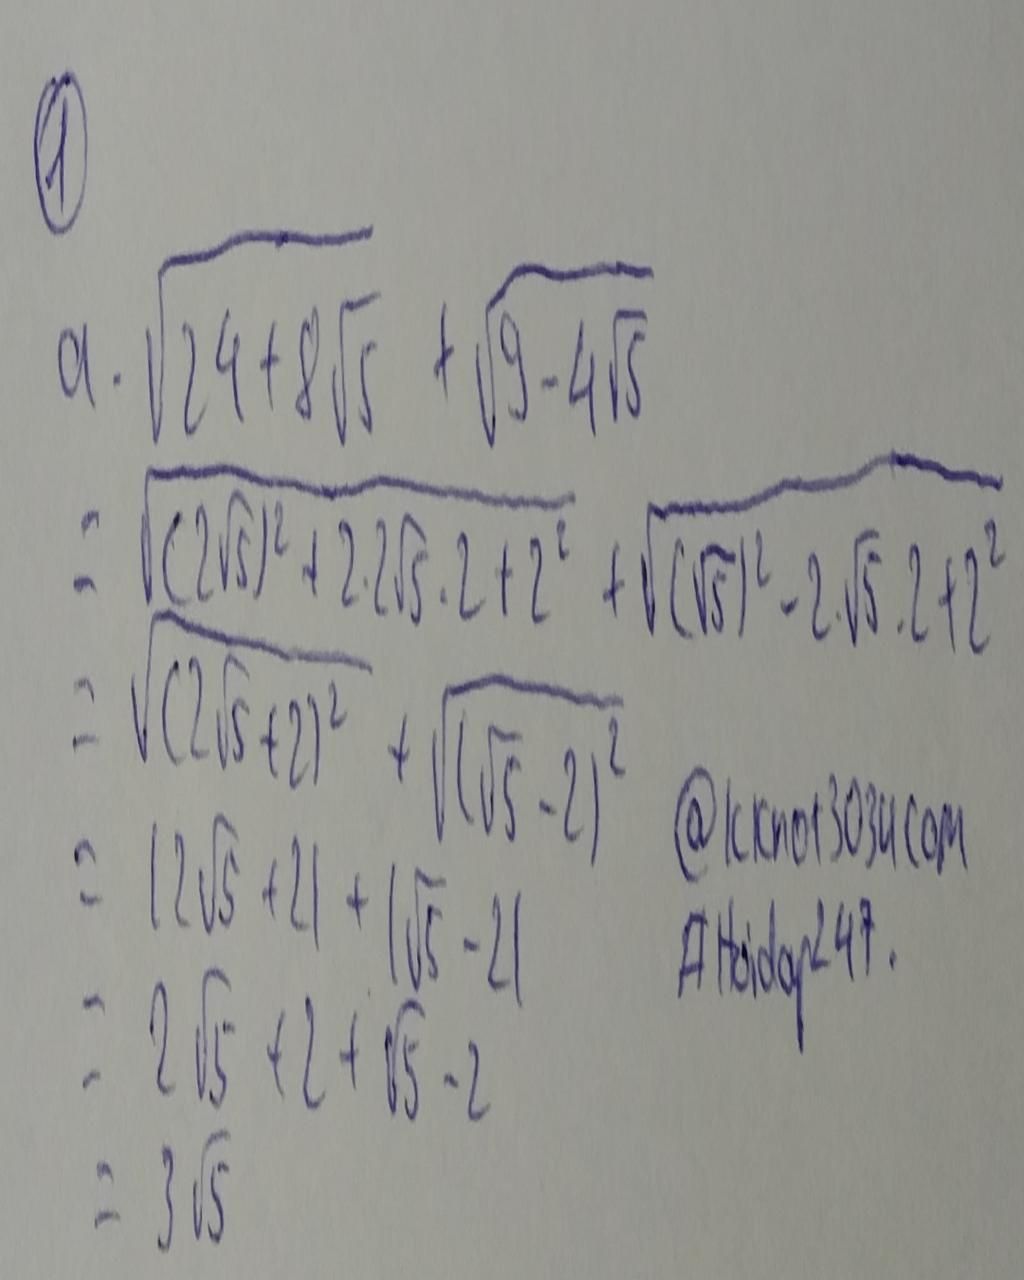 1
a. √(24+8√5) + √(9-4√5)
= √((2√5)² + 2.2√5.2+2²) + √((√5)² - 2.√5.2+2²)
= √((2√5+2)²) + √((√5-2)²)
= |2√5+2| + |√5-2|
= 2√5+2+√5-2
= 3√5
#Hoidap247.